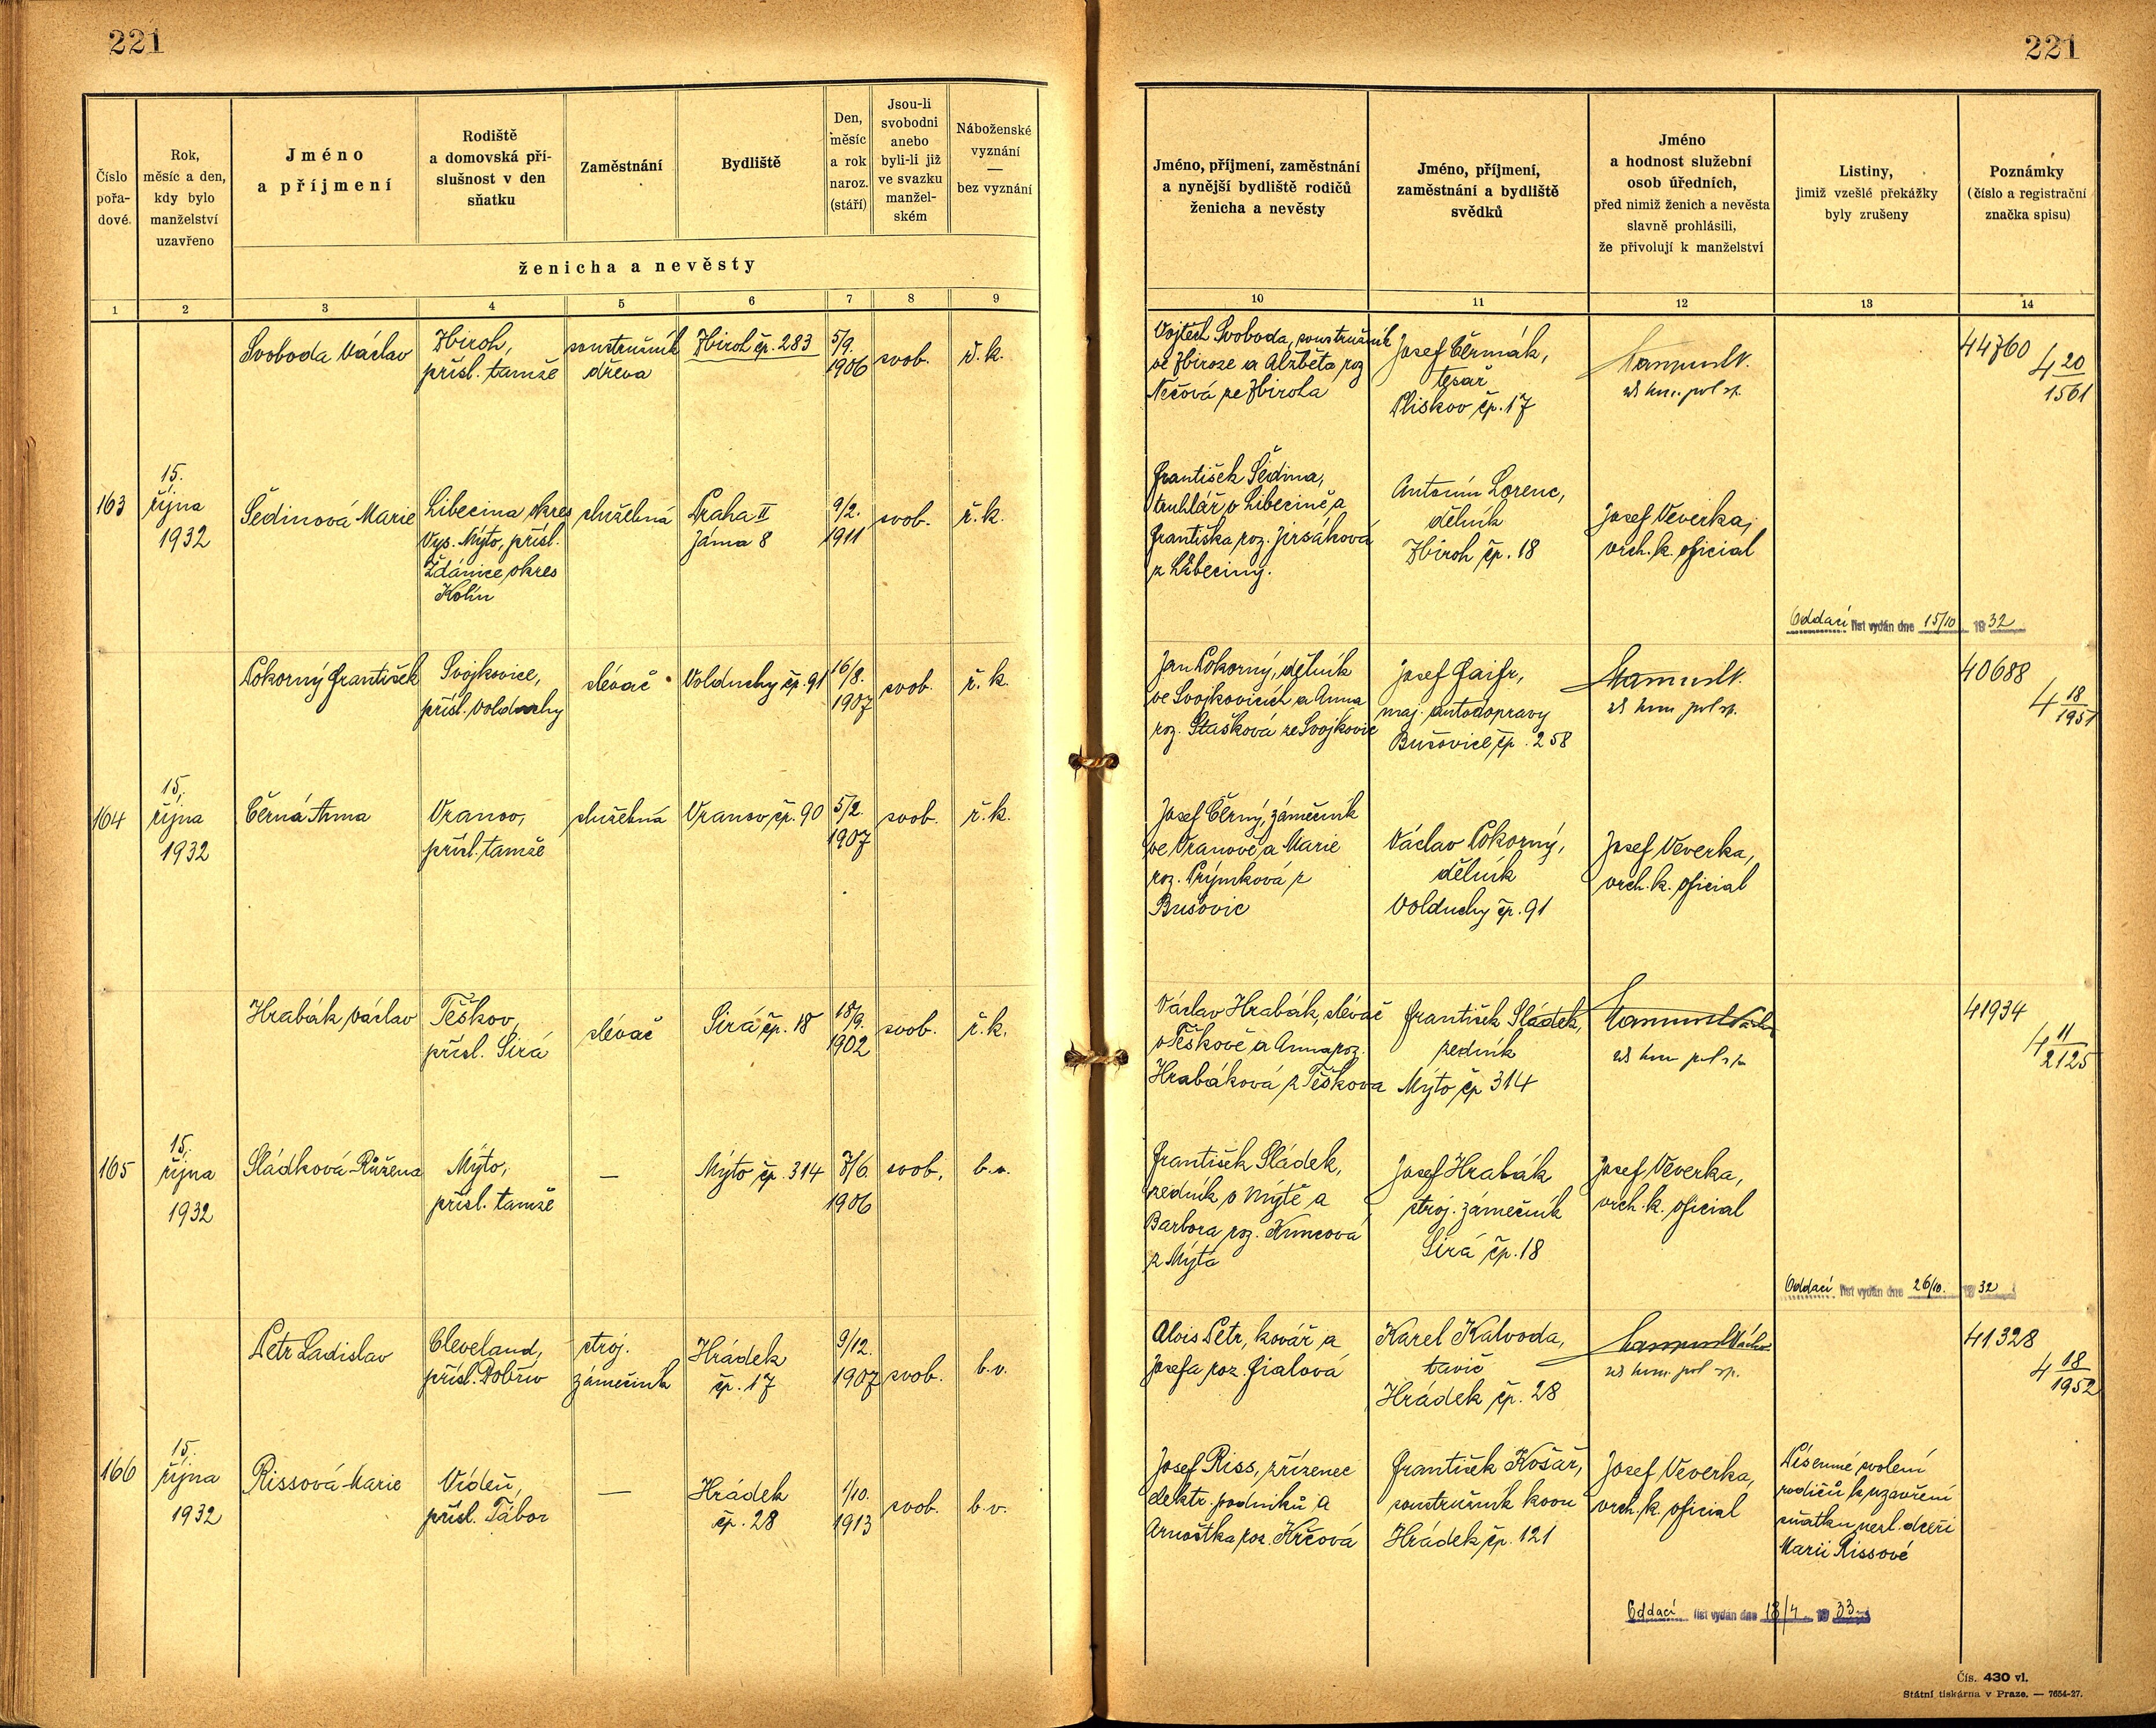 221
221
Číslo
pořa-
dové.
Rok,
měsíc a den,
kdy bylo
manželství
uzavřeno
Jméno
a příjmení
Rodiště
a domovská pří-
slušnost v den
sňatku
Zaměstnání
Bydliště
Den,
měsíc
a rok
naroz.
(stáří)
Jsou-li
svobodni
anebo
byli-li již
ve svazku
manžel-
ském
Náboženské
vyznání
—
bez vyznání
ženicha a nevěsty
Jméno, příjmení, zaměstnání
a nynější bydliště rodičů
ženicha a nevěsty
Jméno, příjmení,
zaměstnání a bydliště
svědků
Jméno
a hodnost služební
osob úředních,
před nimiž ženich a nevěsta
slavně prohlásili,
že přivolují k manželství
Listiny,
jimiž vzešlé překážky
byly zrušeny
Poznámky
(číslo a registrační
značka spisu)
1 2 3 4 5 6 7 8 9 10 11 12 13 14
Svoboda Václav
Zbiroh,
přísl. tamže
soustružník
dřeva
Zbiroh čp. 283
5/9.
1906
svob.
ř. k.
Vojtěch Svoboda, soustružník
ve Zbiroze a Alžběta roz
Nečová ze Zbiroha
Josef Čermák,
tesař
Plískov čp. 17
44760
4 20/1561
163
15.
října
1932
Šedinová Marie
Libecina okres
Vys. Mýto, přísl.
Ždánice, okres
Kolín
služebná
Praha II
Jáma 8
9/2.
1911
svob.
ř. k.
František Šedina,
truhlář v Libecině a
Františka roz. Jirsáková
z Libeciny.
Antonín Lorenc,
dělník
Zbiroh čp. 18
Josef Veverka,
vrch. k. oficial
Oddací list vydán dne 15/10 1932
Pokorný František
Svojkovice,
přísl. Volduchy
slévač
Volduchy čp. 91
16/8.
1907
svob.
ř. k.
Jan Pokorný, dělník
ve Svojkovicích a Anna
roz. Stašková ze Svojkovic
Josef Gaifr,
maj. autodopravy
Bušovice čp. 258
40688
4 18/1951
164
15.
října
1932
Černá Anna
Vranov,
přísl. tamže
služebná
Vranov čp. 90
5/2.
1907
svob.
ř. k.
Josef Černý, zámečník
ve Vranově a Marie
roz. Prýmková z
Bušovic
Václav Pokorný,
dělník
Volduchy čp. 91
Josef Veverka,
vrch. k. oficial
Hrabák Václav
Těškov,
přísl. Sirá
slévač
Sirá čp. 18
18/9.
1902
svob.
ř. k.
Václav Hrabák, slévač
v Těškově a Anna roz.
Hrabáková z Těškova
František Sládek,
zedník
Mýto čp 314
41934
4 11/2125
165
15.
října
1932
Sládková Růžena
Mýto,
přísl. tamže
—
Mýto čp. 314
7/6.
1906
svob.
b. v.
František Sládek,
zedník v Mýtě a
Barbora roz. Kuncová
z Mýta
Josef Hrabák
stroj. zámečník
Sirá čp. 18
Josef Veverka,
vrch. k. oficial
Oddací list vydán dne 26/10. 1932
Petr Ladislav
Cleveland,
přísl. Dobřív
stroj.
zámečník
Hrádek
čp. 17
9/12.
1907
svob.
b. v.
Alois Petr, kovář a
Josefa roz. Fialová
Karel Kalvoda,
tavič
Hrádek čp. 28
41328
4 18/1952
166
15.
října
1932
Rissová Marie
Vídeň,
přísl. Tábor
—
Hrádek
čp. 28
1/10.
1913
svob.
b. v.
Josef Riss, zřízenec
elektr. podniků a
Arnoštka roz. Krčová
František Košař,
soustružník kovů
Hrádek čp. 121
Josef Veverka,
vrch. k. oficial
Písemné svolení
rodičů k uzavření
sňatku nezl. dceři
Marii Rissové
Oddací list vydán dne 18/4 1933
Čís. 430 vl.
Státní tiskárna v Praze. — 7654-27.